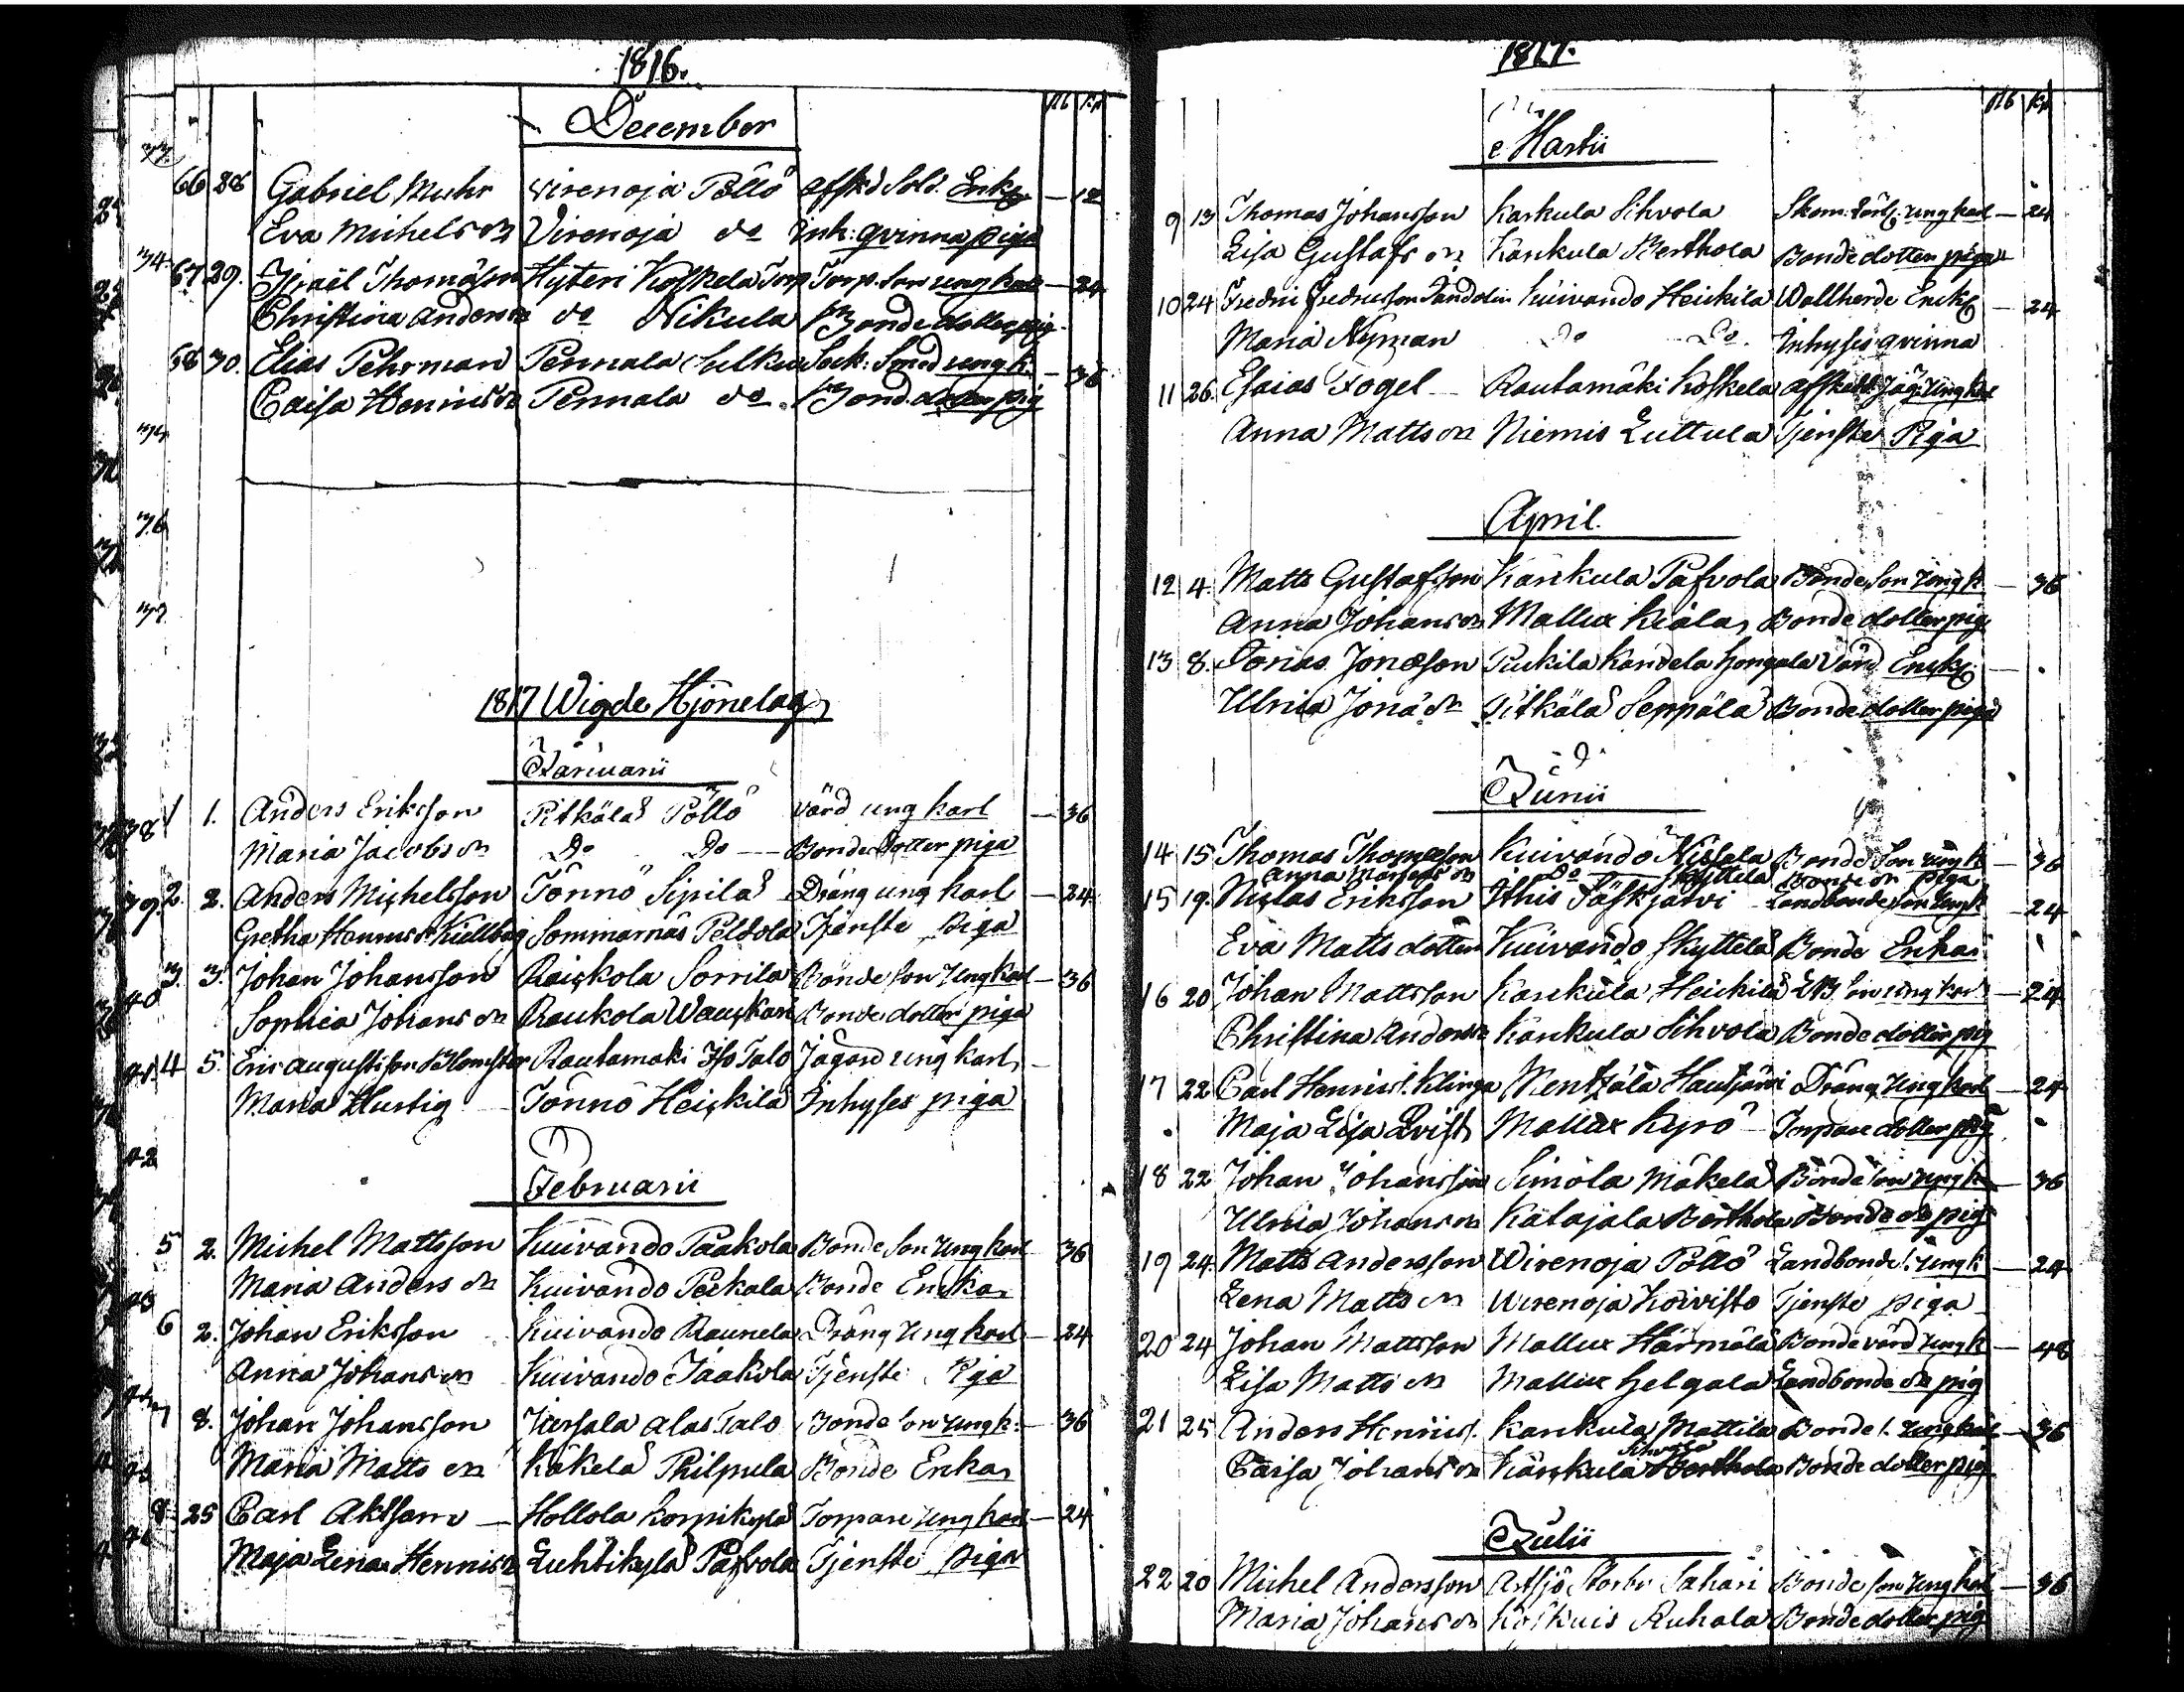 1816.
Rb Kp
December
66 28 Gabriel Muhr Virenoja Pöllö afsk:d Sold. Enkl. — 12
Eva Michels dr Virenoja do Inh: qvinna piga
67 29. Israël Thomasson Hyteri Koskela Torp Torp. Son ung karl — 24
Christina Anders dr do Nikula Bonde dotter pig
68 30. Elias Pehrman Pennala Sulku Sock: Smed ung k. — 36
Caisa Henrics dr Pennala do Bond. dotter pig
1817 Wigde Hjonelag
Januarii
1 1. Anders Eriksson Pitkälä Pöllö värd ung karl — 36
Maria Jacobs dr Do Do — Bonde Dotter piga
2. 2. Anders Michelsson Tönnö Sipilä Dräng ung karl — 24
Gretha Henrics dr Kiellberg Sommarnäs Peltola Tjenste piga
3. 3. Johan Johansson Raiskola Sorrila Bonde Son Ung karl — 36
Sophia Johans dr Raukola Wauskari Bonde dotter piga
4 5. Eric Augustisson Blomster Rautamäki Iso Talo Jägare ung karl —
Maria Hurtig Tönnö Heickilä Inhyses piga
Februarii
5 2. Michel Mattsson Kuivando Paakola Bonde Son Ung karl 36
Maria Anders dr Kuivando Peckala Bonde Enka
6 2. Johan Eriksson Kuivando Raunela Dräng Ung karl — 24
Anna Johans dr Kuivando Jaakola Tjenste Piga
7 8. Johan Johansson Jversala Alas Talo Bonde Son ung k: — 36
Maria Matts dr Käkelä Pilpula Bonde Enka
8 25 Carl Aktsam — Hollola Korpikylä Torpare Ung karl — 24
Maja Lena Henrics dr Luhtikylä Pafvola Tjenste piga
1817.
Rb Kp
Martii
9 13 Thomas Johansson Karkula Sihvola Skom: Lärl: ung karl — 24
Lisa Gustafs dr Kankula Berthola Bonde dotter piga
10 24 Fredric Fredricsson Sandolin Kuivando Heickilä Wallherde Enckl — 24
Maria Nyman Do Do. Inhyses qvinna
11 26. Esaias Fogel — Rautamäki Koskela afsked: Jäg: Ung karl
Anna Matts dr Niemis Luttula Tjenste Piga
April.
12 4. Matts Gustafsson Kankula Pafvola Bonde Son Ung k — 36
Anna Johans dr Mallux Kiala Bonde dotter pig
13 8. Jonas Jonasson Kandela Hongala Värd Enckl —
Ulrica Jonæ dr Pitkälä Seppälä Bonde dotter piga
Junii
14 15 Thomas Thomasson Kuivando Nissala Bonde Son ung k — 36
Anna dr Do Skyttelä Bonde dr piga
15 19. Niclas Eriksson Ithis Säskjärvi Landbonde Son Ung k — 24
Eva Matts dotter Kuivando Skyttelä Bonde Enka
16 20 Johan Mattsson Kankula Heickilä LB. Son ung karl — 24
Christina Anders dr Kankula Sihvola Bonde dotter pig
17 22 Carl Henrics. Klinga Nentzälä Hautjärvi Dräng Ung karl — 24
Maja Lisa Qvist Mallux Kyrö — Torpare dotter pig
18 22 Johan Johansson Simola Mäkelä Bonde Son ung k — 36
Ulrica Johans dr Katajala Berthola Bonde dr pig
19 24 Matts Andersson Wirenoja Pöllö Landbonde S. Ung k — 24
Lena Matts dr Wirenoja Koivisto Tjenste piga
20 24 Johan Mattsson Mallux Härmälä Bonde värd ung k — 48
Lisa Matts dr Mallux Helgala Landbonde dr pig
21 25 Anders Henrics. Kankula Mattila Bonde S. Ung karl — 36
Sihvola
Caisa Johans dr Kankula Berthola Bonde dotter pig
Julii
22 20 Michel Andersson Artsjö Storby Sahari Bonde Son Ung karl — 36
Maria Johans dr Koskuis Ruhala Bonde dotter pig